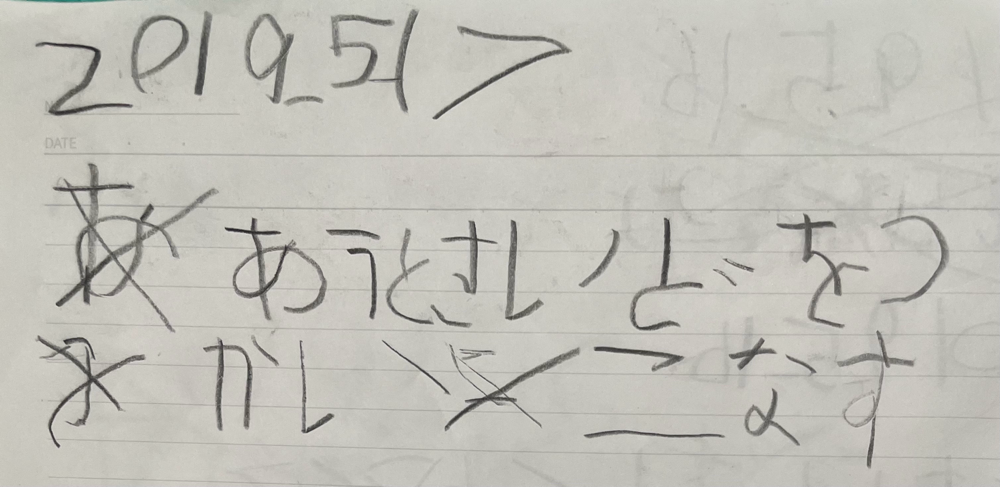 2019.5.17
DATE
あうとさいどをつ
かいこなす